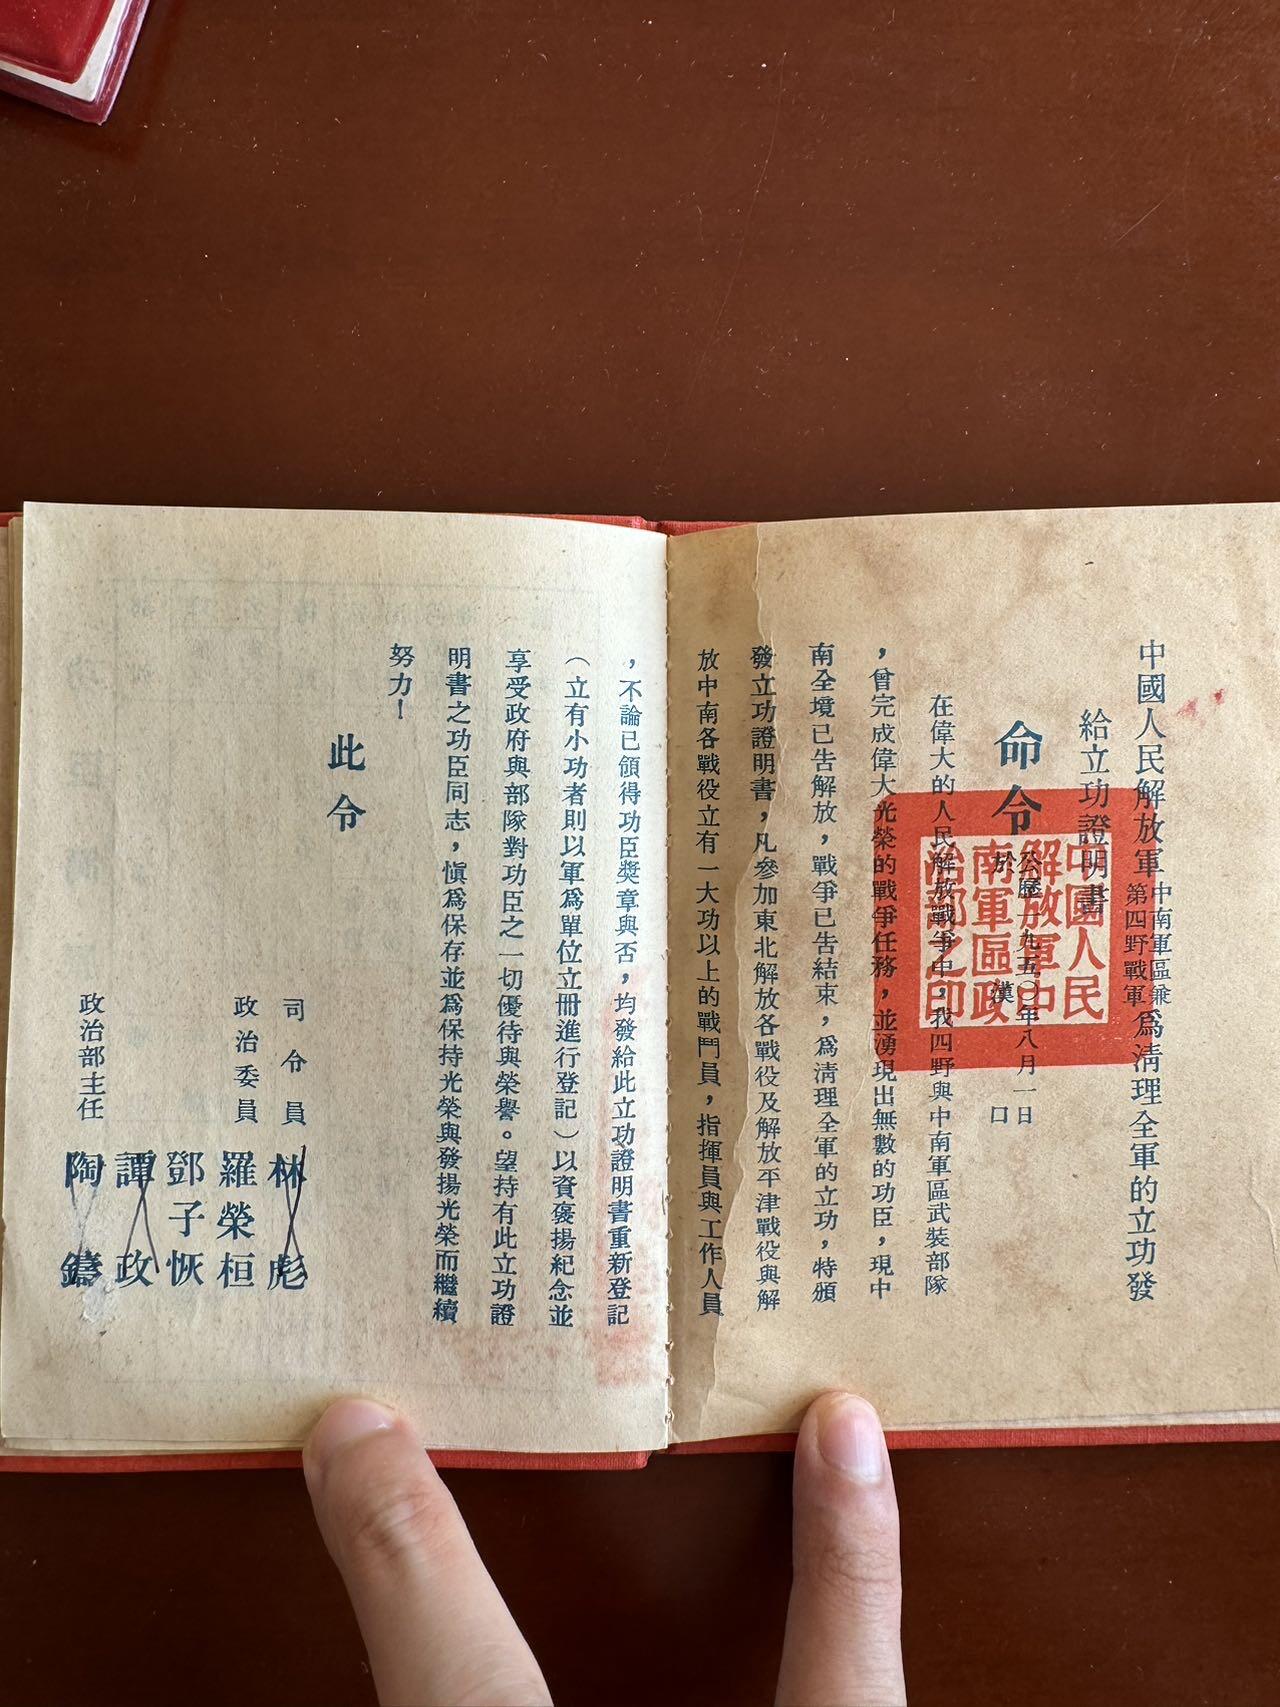 中國人民解放軍中南軍區兼第四野戰軍爲淸理全軍的立功發
給立功證明書
命令
公歷一九五〇年八月一日
於漢口
在偉大的人民解放戰爭中，我四野與中南軍區武裝部隊
，曾完成偉大光榮的戰爭任務，並湧現出無數的功臣，現中
南全境已吿解放，戰爭已吿結束，爲淸理全軍的立功，特頒
發立功證明書，凡參加東北解放各戰役及解放平津戰役與解
放中南各戰役立有一大功以上的戰鬥員，指揮員與工作人員
中國人民
解放軍中
南軍區政
治部之印
，不論已領得功臣獎章與否，均發給此立功證明書重新登記
（立有小功者則以軍爲單位立冊進行登記）以資褒揚紀念並
享受政府與部隊對功臣之一切優待與榮譽。望持有此立功證
明書之功臣同志，愼爲保存並爲保持光榮與發揚光榮而繼續
努力！
此令
司令員 林彪
政治委員 羅榮桓
鄧子恢
政治部主任 譚政
陶鑄